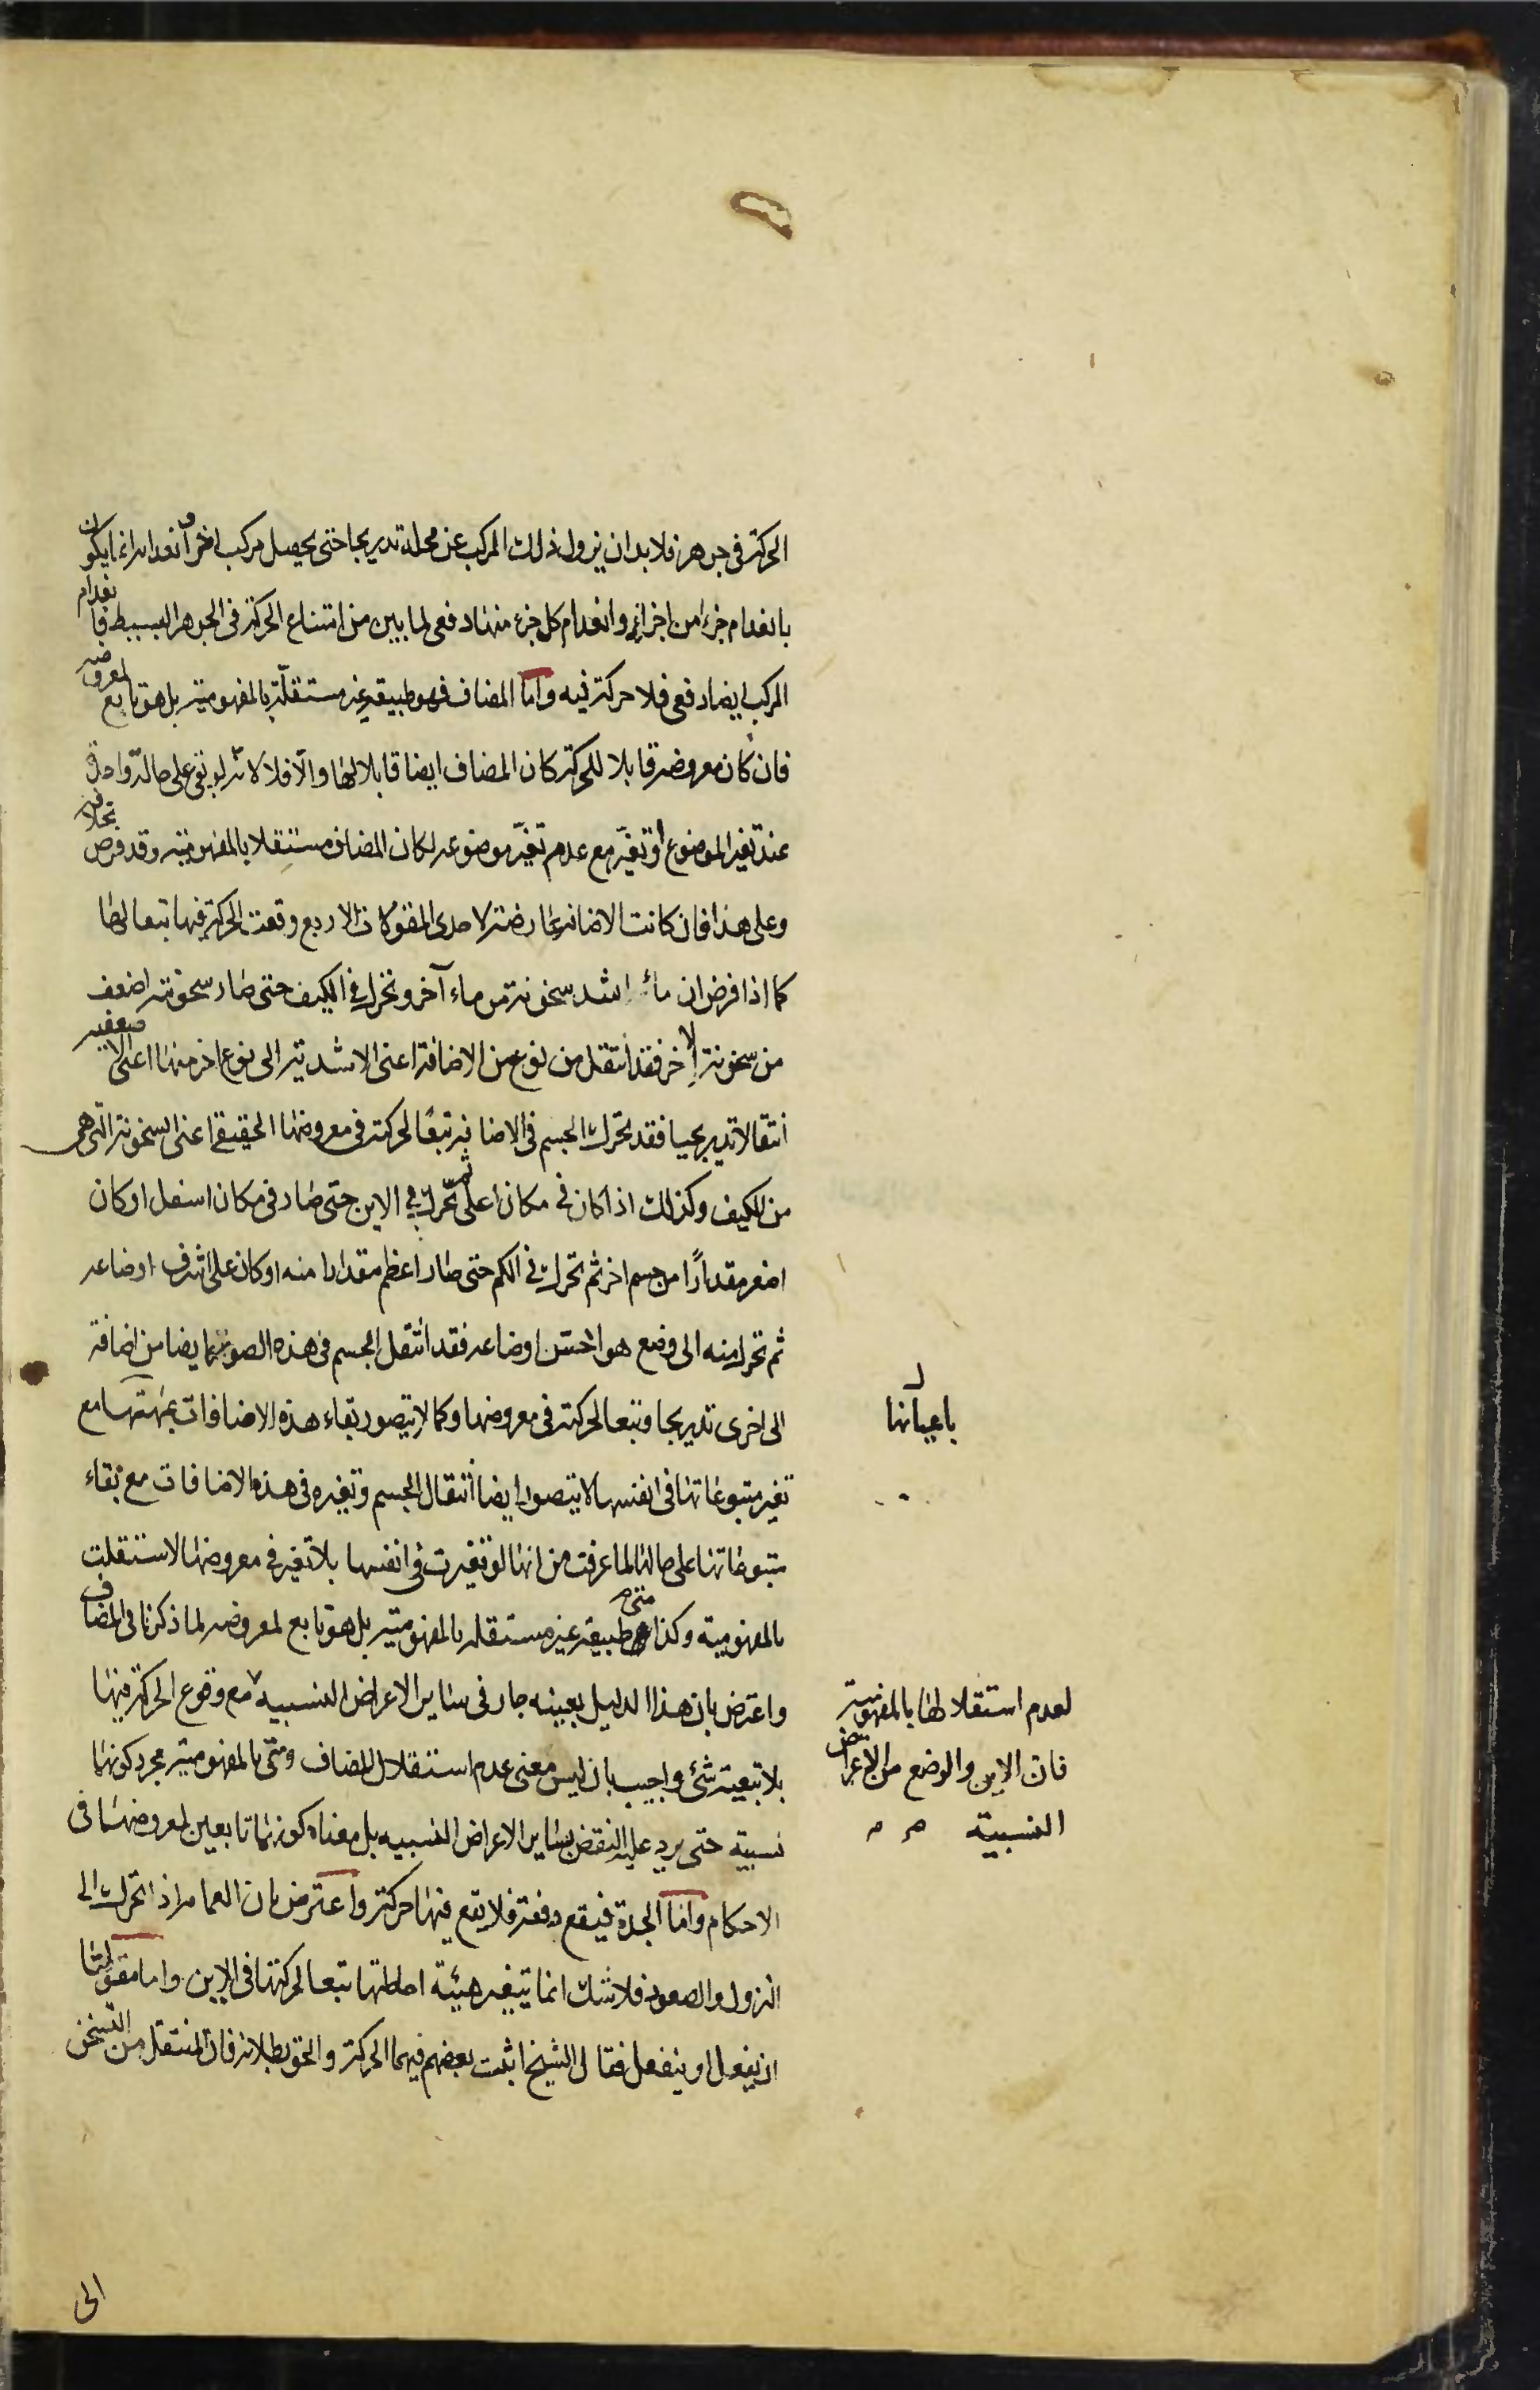 الحركة فى جوهره فلا بد ان يزول ذلك المركب عن محله تدريجا حتى يحصل مركب اخر و انعدامه انما يكون
بانعدام جزء من اجزائه وانعدام كل جزء منها دفعى لما بين من امتناع الحركة فى الجوهر البسيط فانعدام
المركب ايضا دفعى فلا حركة فيه واما المضاف فهو طبيعة غير مستقلة بالمفهومية بل هو تابع لمعروضه
فان كان معروضه قابلا للحركة كان المضاف ايضا قابلا لها والا فلا لانه لو بقى على حالة واحدة
عند تغير الموضوع او تغير مع عدم تغير موضوعه لكان المضاف مستقلا بالمفهومية وقد فرض بخلافه
وعلى هذا فان كانت الاضافة عارضة لاحدى المقولات الاربع وقعت الحركة فيها تبعا لها
كما اذا فرض ان ماء اشد سخونة من ماء آخر وتحرك فى الكيف حتى صار سخونته اضعف
من سخونة الاخر فقد انتقل من نوع من الاضافة اعنى الاشدية الى نوع اخر منها اعنى الاضعفية
انتقالا تدريجيا فقد تحرك الجسم فى الاضافة تبعًا لحركته فى معروضها الحقيقى اعنى السخونة التى هى
من الكيف وكذلك اذا كان فى مكان اعلى ثم تحرك فى الاين حتى صار فى مكان اسفل او كان
اصغر مقدارًا من جسم اخر ثم تحرك فى الكم حتى صار اعظم مقدارا منه او كان على اشرف اوضاعه
ثم تحرك منه الى وضع هو اخس اوضاعه فقد انتقل الجسم فى هذه الصور ايضا من اضافة
الى اخرى تدريجا وتبعا لحركته فى معروضها وكما لا يتصور بقاء هذه الاضافات مع
باعيانها
تغير متبوعاتها فى انفسها لا يتصور ايضا انتقال الجسم وتغيره فى هذه الاضافات مع بقاء
متبوعاتها على حالها لما عرفت من انها لو تغيرت فى انفسها بلا تغير فى معروضها لاستقلت
بالمفهومية وكذا متى طبيعة غير مستقلة بالمفهومية بل هو تابع لمعروضه لما ذكرنا فى المضاف
واعترض بان هذا الدليل بعينه جار فى ساير الاعراض النسبية مع وقوع الحركة فيها
لعدم استقلالها بالمفهومية
فان الاين والوضع من الاعراض
النسبية
بلا تبعية شئ واجيب بان ليس معنى عدم استقلال المضاف ومتى بالمفهومية مجرد كونهما
نسبية حتى يرد عليه النقض بساير الاعراض النسبيه بل معناه كونهما تابعين لمعروضهما فى
الاحكام واما الجدة فيقع دفعة فلا يقع فيها حركة واعترض بان العمامة اذا تحرك الى
النزول والصعود فلا شك انما يتغير هيئة احاطتها تبعا لحركتها فى الاين واما مقولتا
ان يفعل او ينفعل فقال الشيخ اثبت بعضهم فيهما الحركة والحق بطلانه فان المنتقل من التسخن
الى